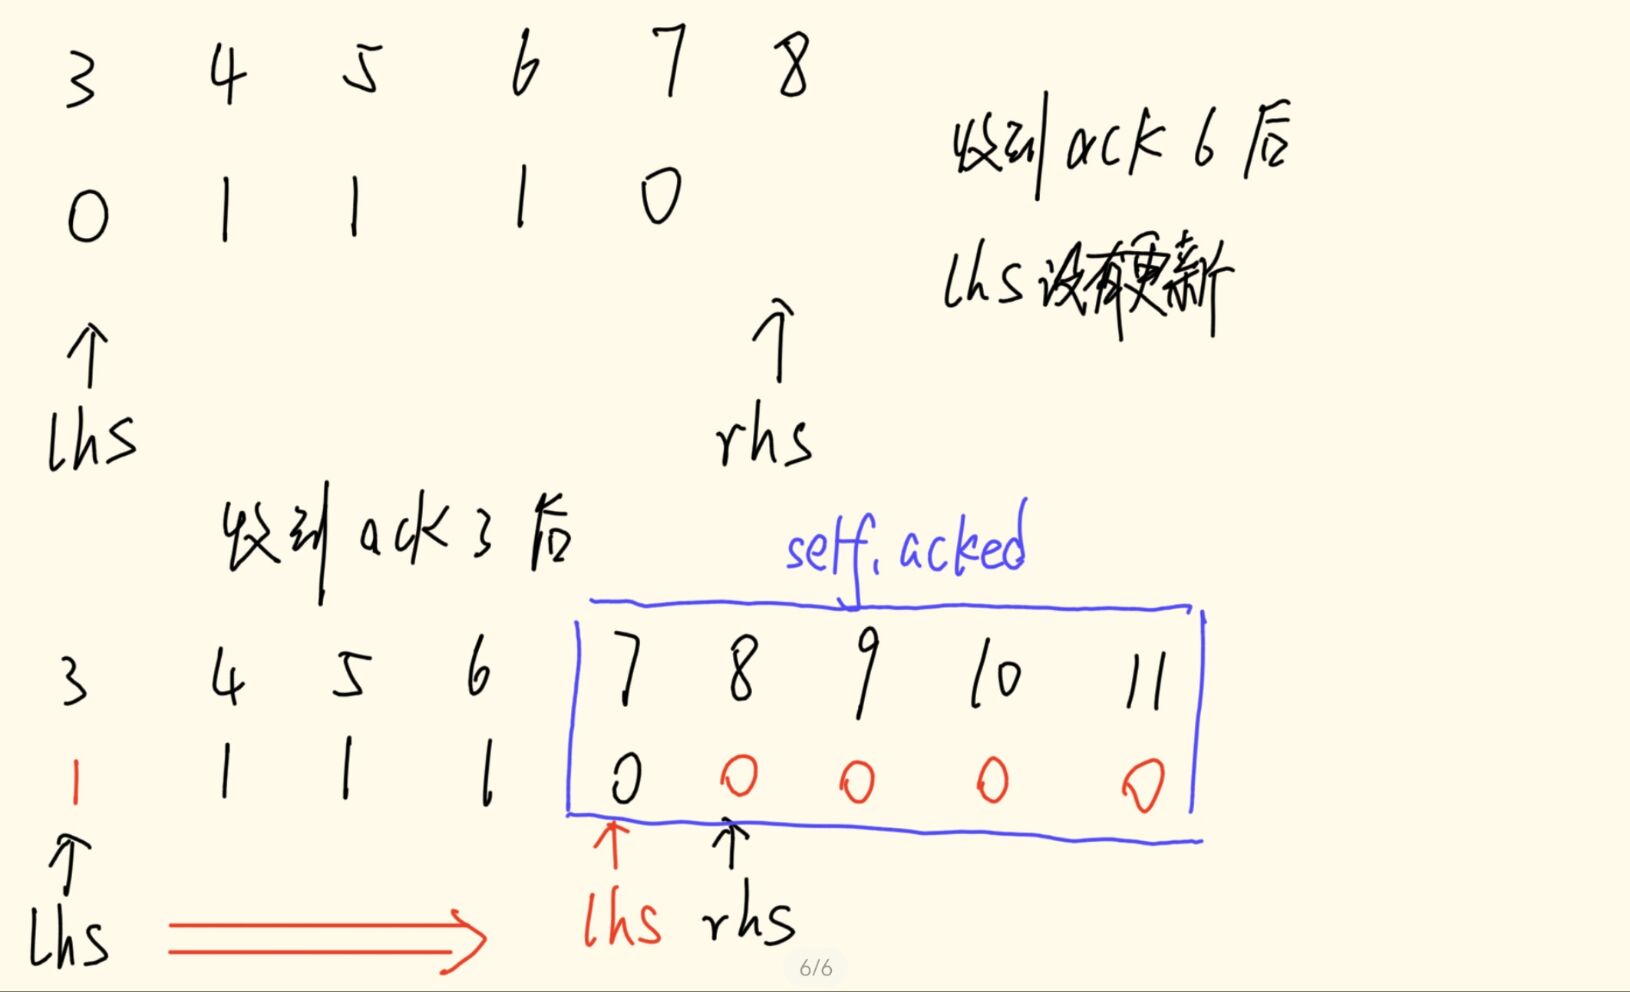 3 4 5 6 7 8
0 1 1 1 0
收到 ack 6 后
lhs 没有更新
lhs
rhs
收到 ack 3 后
self.acked
3 4 5 6 7 8 9 10 11
1 1 1 1 0 0 0 0 0
lhs
lhs
rhs
6/6